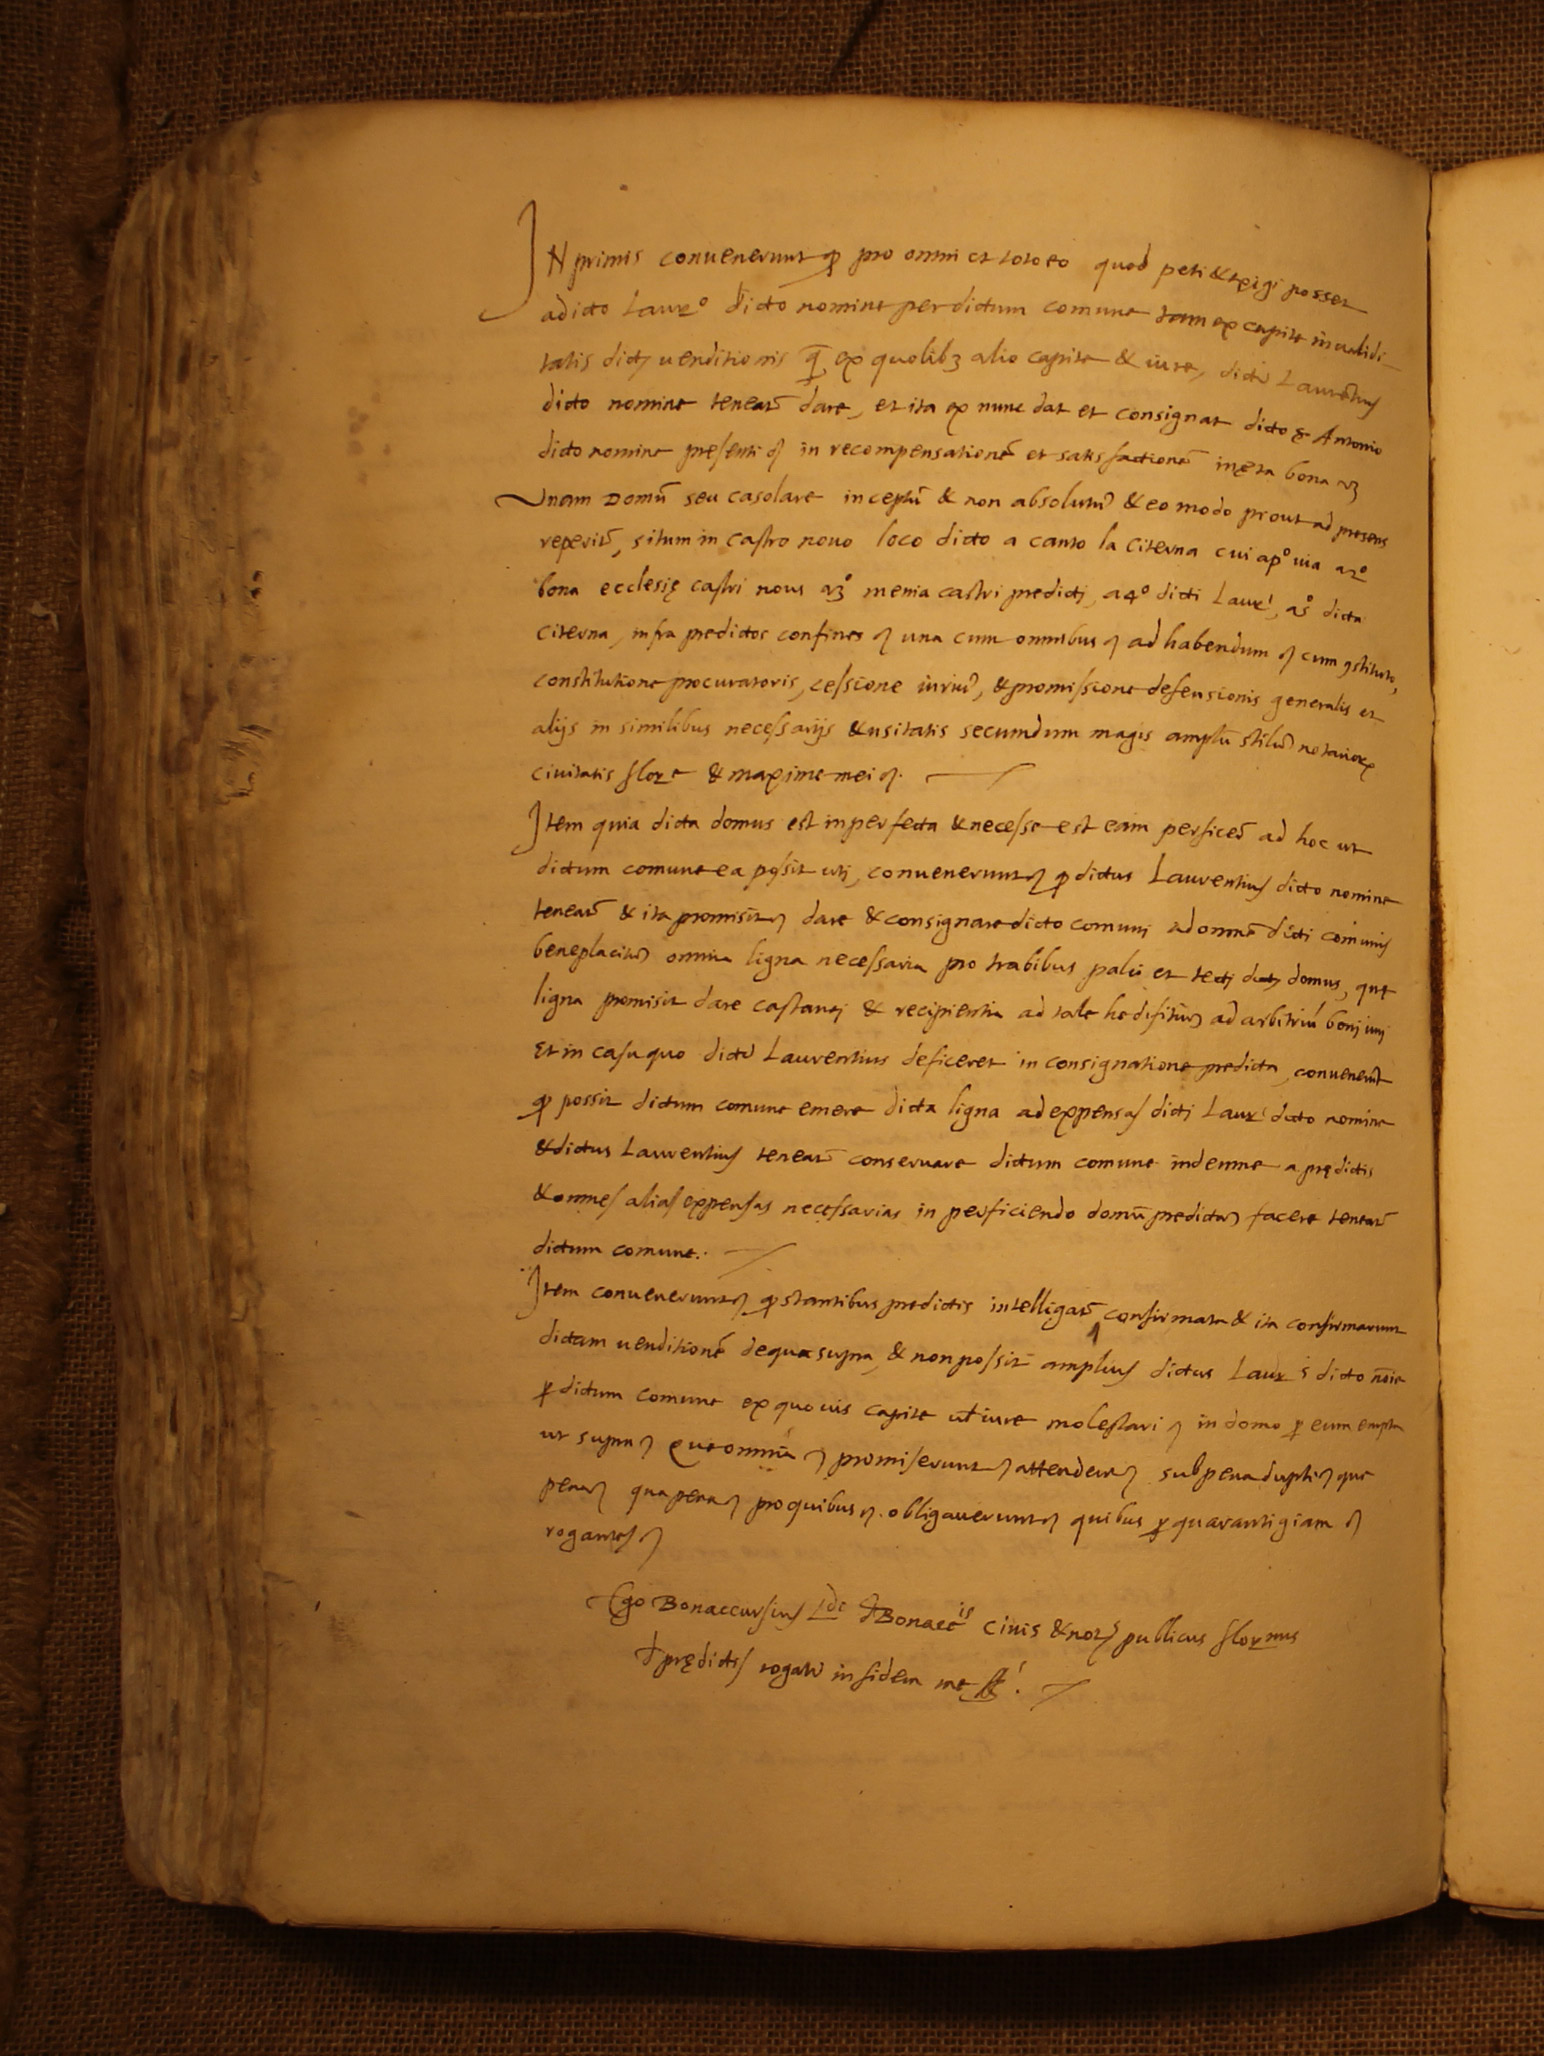 INprimis conuenerunt ꝙ pro omni et toto eo quod peti & exigi posset
a dicto Laurº dicto nomine per dictum comune tam ex capite inualidi-
tatis dictȩ uenditionis qᷓ ex quolibꝫ alio capite & iure, dictꝰ Laurētius
dicto nomine teneat᷑ dare, et ita ex nunc dat et consignat dicto ser Antonio
dicto nomine presenti ꝯ in recompensationē et satisfactionē infrascripta bona vꝫ
Vnam Domū seu casolare inceptū & non absolutū & eo modo prout ad presens
reperit᷑, situm in castro nouo loco dicto a canto la citerna cui apº uia a 2º
bona ecclesię castri noui a 3º menia castri predicti, a 4º dicti Laurⁱ, a 5º dicta
citerna, infra predictos confines ꝯ una cum omnibus ꝯ ad habendum ꝯ cum ꝯstituto,
constitutione procuratoris, cessione iuriū, & promissione defensionis generalis et
alijs in similibus necessarijs & usitatis secundum magis amplū stilū notarioꝝ
ciuitatis flore & maxime mei ꝯ.
Item quia dicta domus est inperfecta & necesse est eam perficē ad hoc ut
dictum comune ea possit uti, conuenerunt ꝯ ꝙ dictus Laurentius dicto nomine
teneat᷑ & ita promisit ꝯ dare & consignare dicto comuni ad omnē dicti comunis
beneplacitū omnia ligna necessaria pro trabibus palci et tecti dictȩ domus, quę
ligna promisit dare castanei & recipientia ad tale hedifitiū ad arbitriū boni uiri
Et in casu quo dictꝰ Laurentius deficeret in consignatione predicta, conuenerūt
ꝙ possit dictum comune emere dicta ligna ad expensas dicti Laurⁱ dicto nomine
& dictus Laurentius teneat᷑ conseruare dictum comune indemne a prędictis
& omnes alias expensas necessarias in perficiendo domū predictā facere teneat᷑
dictum comune.
Item conuenerunt ꝯ ꝙ stantibus predictis intelligat᷑ confirmata & ita confirmarunt
dictam uenditionē de qua supra, & non possit amplius dictus Laurs dicto noīe
ꝑ dictum comune ex quouis capite ul̄ iure molestari ꝯ in domo ꝑ eum empta
ut supra ꝯ Que omnia ꝯ promiserunt ꝯ attendere ꝯ sub pena dupli ꝯ que
pena ꝯ qua pena ꝯ pro quibus ꝯ. obligauerunt ꝯ quibus ꝑ guarantigiam ꝯ
rogantes ꝯ
Ego Bonaccursius Lde de Bonacis ciuis & notȩ publicus flornus
de prędictis rogatꝰ in fidem me ss.